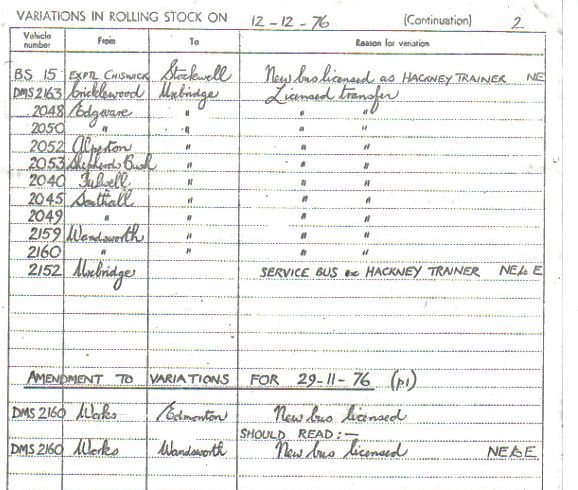 VARIATIONS IN ROLLING STOCK ON 12-12-76 (Continuation) 2
Vehicle number From To Reason for variation
BS 15 EXPTL CHISWICK Stockwell New bus licensed as HACKNEY TRAINER NE
DMS 2163 Cricklewood Uxbridge Licensed transfer
2048 Edgware " " "
2050 " " " "
2052 Alperton " " "
2053 Shepherds Bush " " "
2040 Fulwell " " "
2045 Southall " " "
2049 " " " "
2159 Wandsworth " " "
2160 " " " "
2152 Uxbridge SERVICE BUS ex HACKNEY TRAINER NE& E
AMENDMENT TO VARIATIONS FOR 29-11-76 (p1)
DMS 2160 Works Edmonton New bus licensed
SHOULD READ:-
DMS 2160 Works Wandsworth New bus licensed NE&E